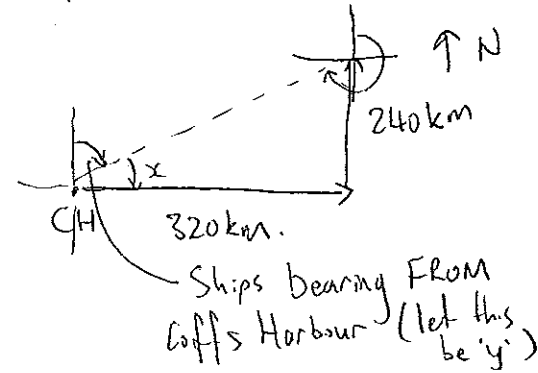 ↑ N
240km
x
C/H
320km.
Ships bearing FROM
Coffs Harbour (let this
be 'y')